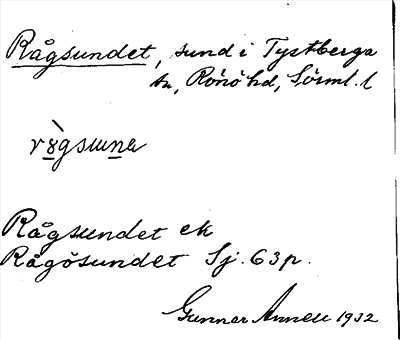 Rågsundet, sund i Tystberga
sn, Rönö hd, Sörml. l
Rågsundet ek
Rågösundet Sj. 63 p.
Gunnar 1932